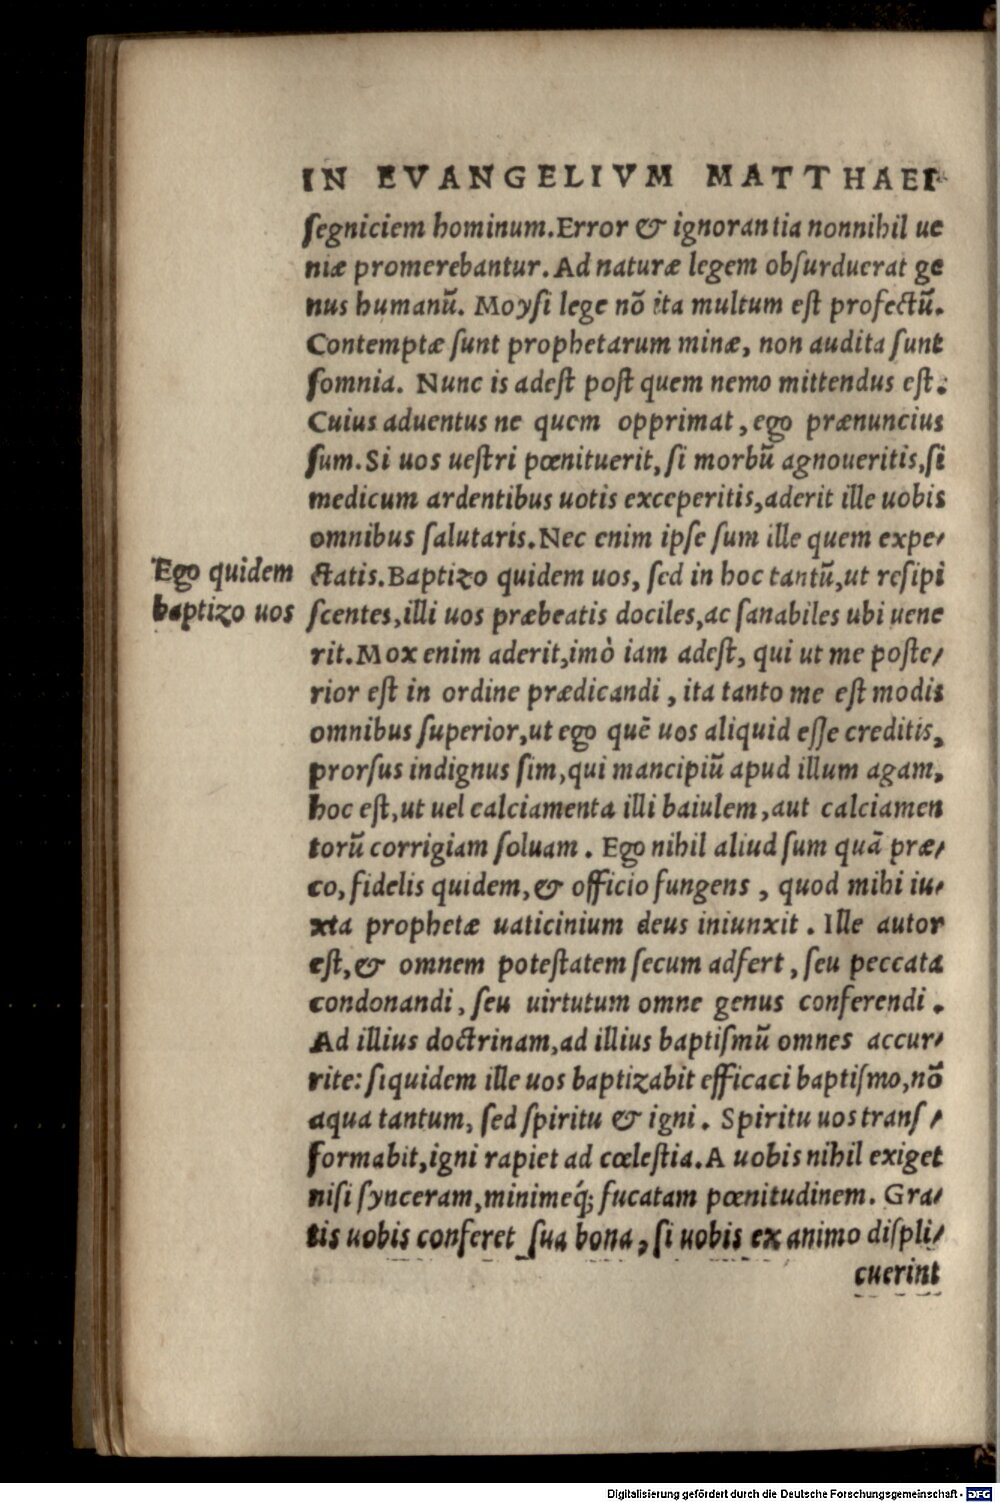 IN EVANGELIVM MATTHAEI
segniciem hominum. Error & ignorantia nonnihil ue
niæ promerebantur. Ad naturæ legem obsurduerat ge
nus humanũ. Moysi lege nõ ita multum est profectũ.
Contemptæ sunt prophetarum minæ, non audita sunt
somnia. Nunc is adest post quem nemo mittendus est:
Cuius aduentus ne quem opprimat, ego prænuncius
sum. Si uos uestri pœnituerit, si morbũ agnoueritis, si
medicum ardentibus uotis exceperitis, aderit ille uobis
omnibus salutaris. Nec enim ipse sum ille quem expe/
Ego quidem
baptizo uos
ctatis. Baptizo quidem uos, sed in hoc tantũ, ut resipi
scentes, illi uos præbeatis dociles, ac sanabiles ubi uene
rit. Mox enim aderit, imò iam adest, qui ut me poste/
rior est in ordine prædicandi, ita tanto me est modis
omnibus superior, ut ego quẽ uos aliquid esse creditis,
prorsus indignus sim, qui mancipiũ apud illum agam,
hoc est, ut uel calciamenta illi baiulem, aut calciamen
torũ corrigiam soluam. Ego nihil aliud sum quã præ/
co, fidelis quidem, & officio fungens, quod mihi iu/
xta prophetæ uaticinium deus iniunxit. Ille autor
est, & omnem potestatem secum adfert, seu peccata
condonandi, seu uirtutum omne genus conferendi.
Ad illius doctrinam, ad illius baptismũ omnes accur/
rite: siquidem ille uos baptizabit efficaci baptismo, nõ
aqua tantum, sed spiritu & igni. Spiritu uos trans/
formabit, igni rapiet ad cœlestia. A uobis nihil exiget
nisi synceram, minimeq́; fucatam pœnitudinem. Gra/
tis uobis conferet sua bona, si uobis ex animo displi/
cuerint
Digitalisierung gefördert durch die Deutsche Forschungsgemeinschaft - DFG